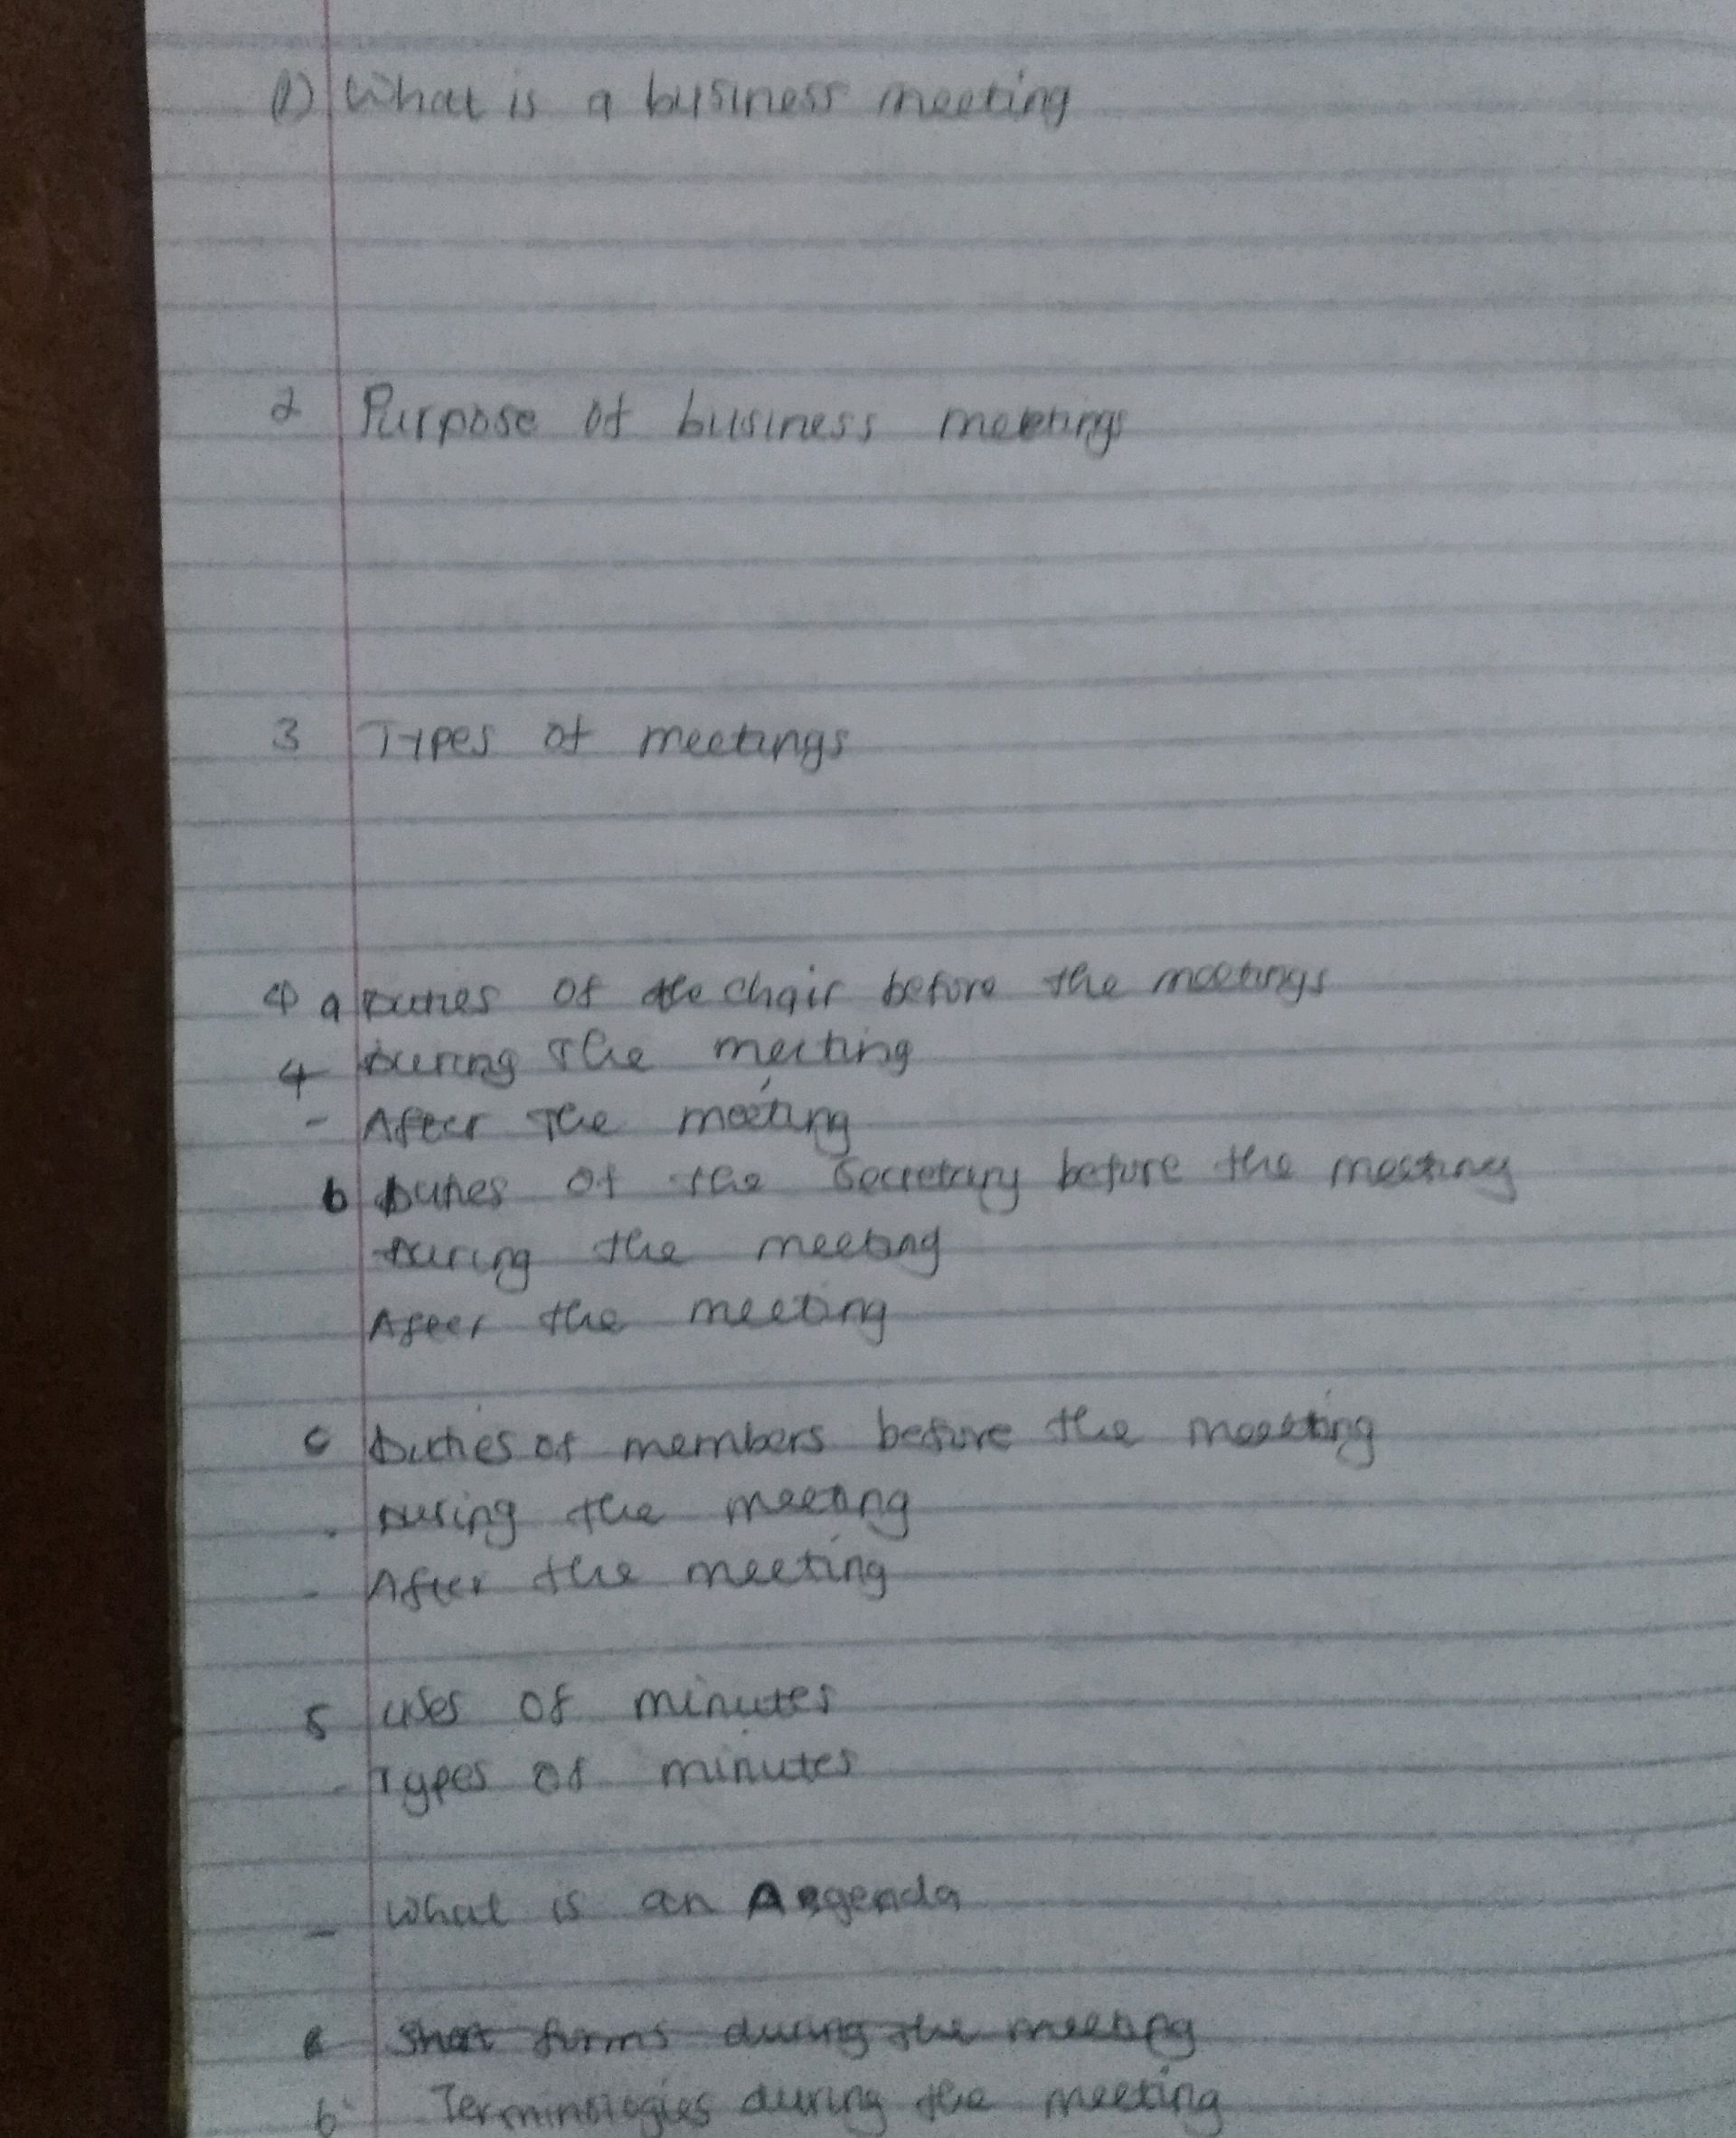 (1) What is a business meeting
2 Purpose of business meetings
3 Types of meetings
4 a Duties of the chair before the meetings
4 During the meeting
- After The meeting
b Duties of the Secretary before the meeting
During the meeting
After the meeting
c Duties of members before the meeting
. During the meeting
- After the meeting
5 uses of minutes
- Types of minutes
- What is an Agenda
Short forms during the meeting
6 Terminologies during the meeting